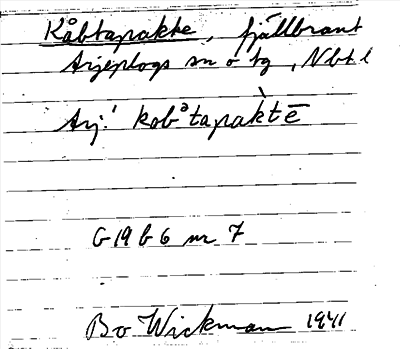 Kåbtapakte, fjällbrant
Arjeplogs sn o tg, Nbt l
Arj.! kobᵊtapàktē
G 19 b 6 nr 7
Bo Wickman 1941